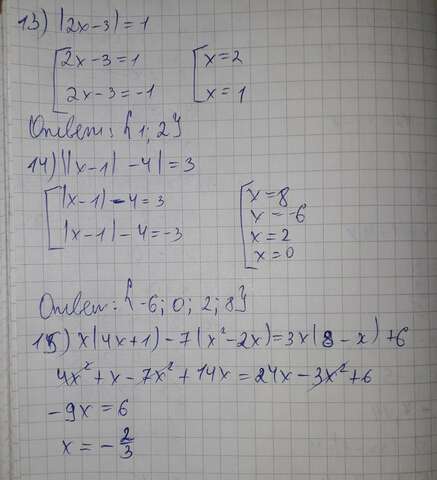 13) |2x-3|=1
[2x-3=1 [x=2
2x-3=-1 x=1
Ответ: {1; 2}
14) ||x-1|-4|=3
[|x-1|-4=3 [x=8
|x-1|-4=-3 x=-6
x=2
x=0
Ответ: {-6; 0; 2; 8}
15) x(4x+1)-7(x²-2x)=3x(8-x)+6
4x²+x-7x²+14x=24x-3x²+6
-9x=6
x=-2/3